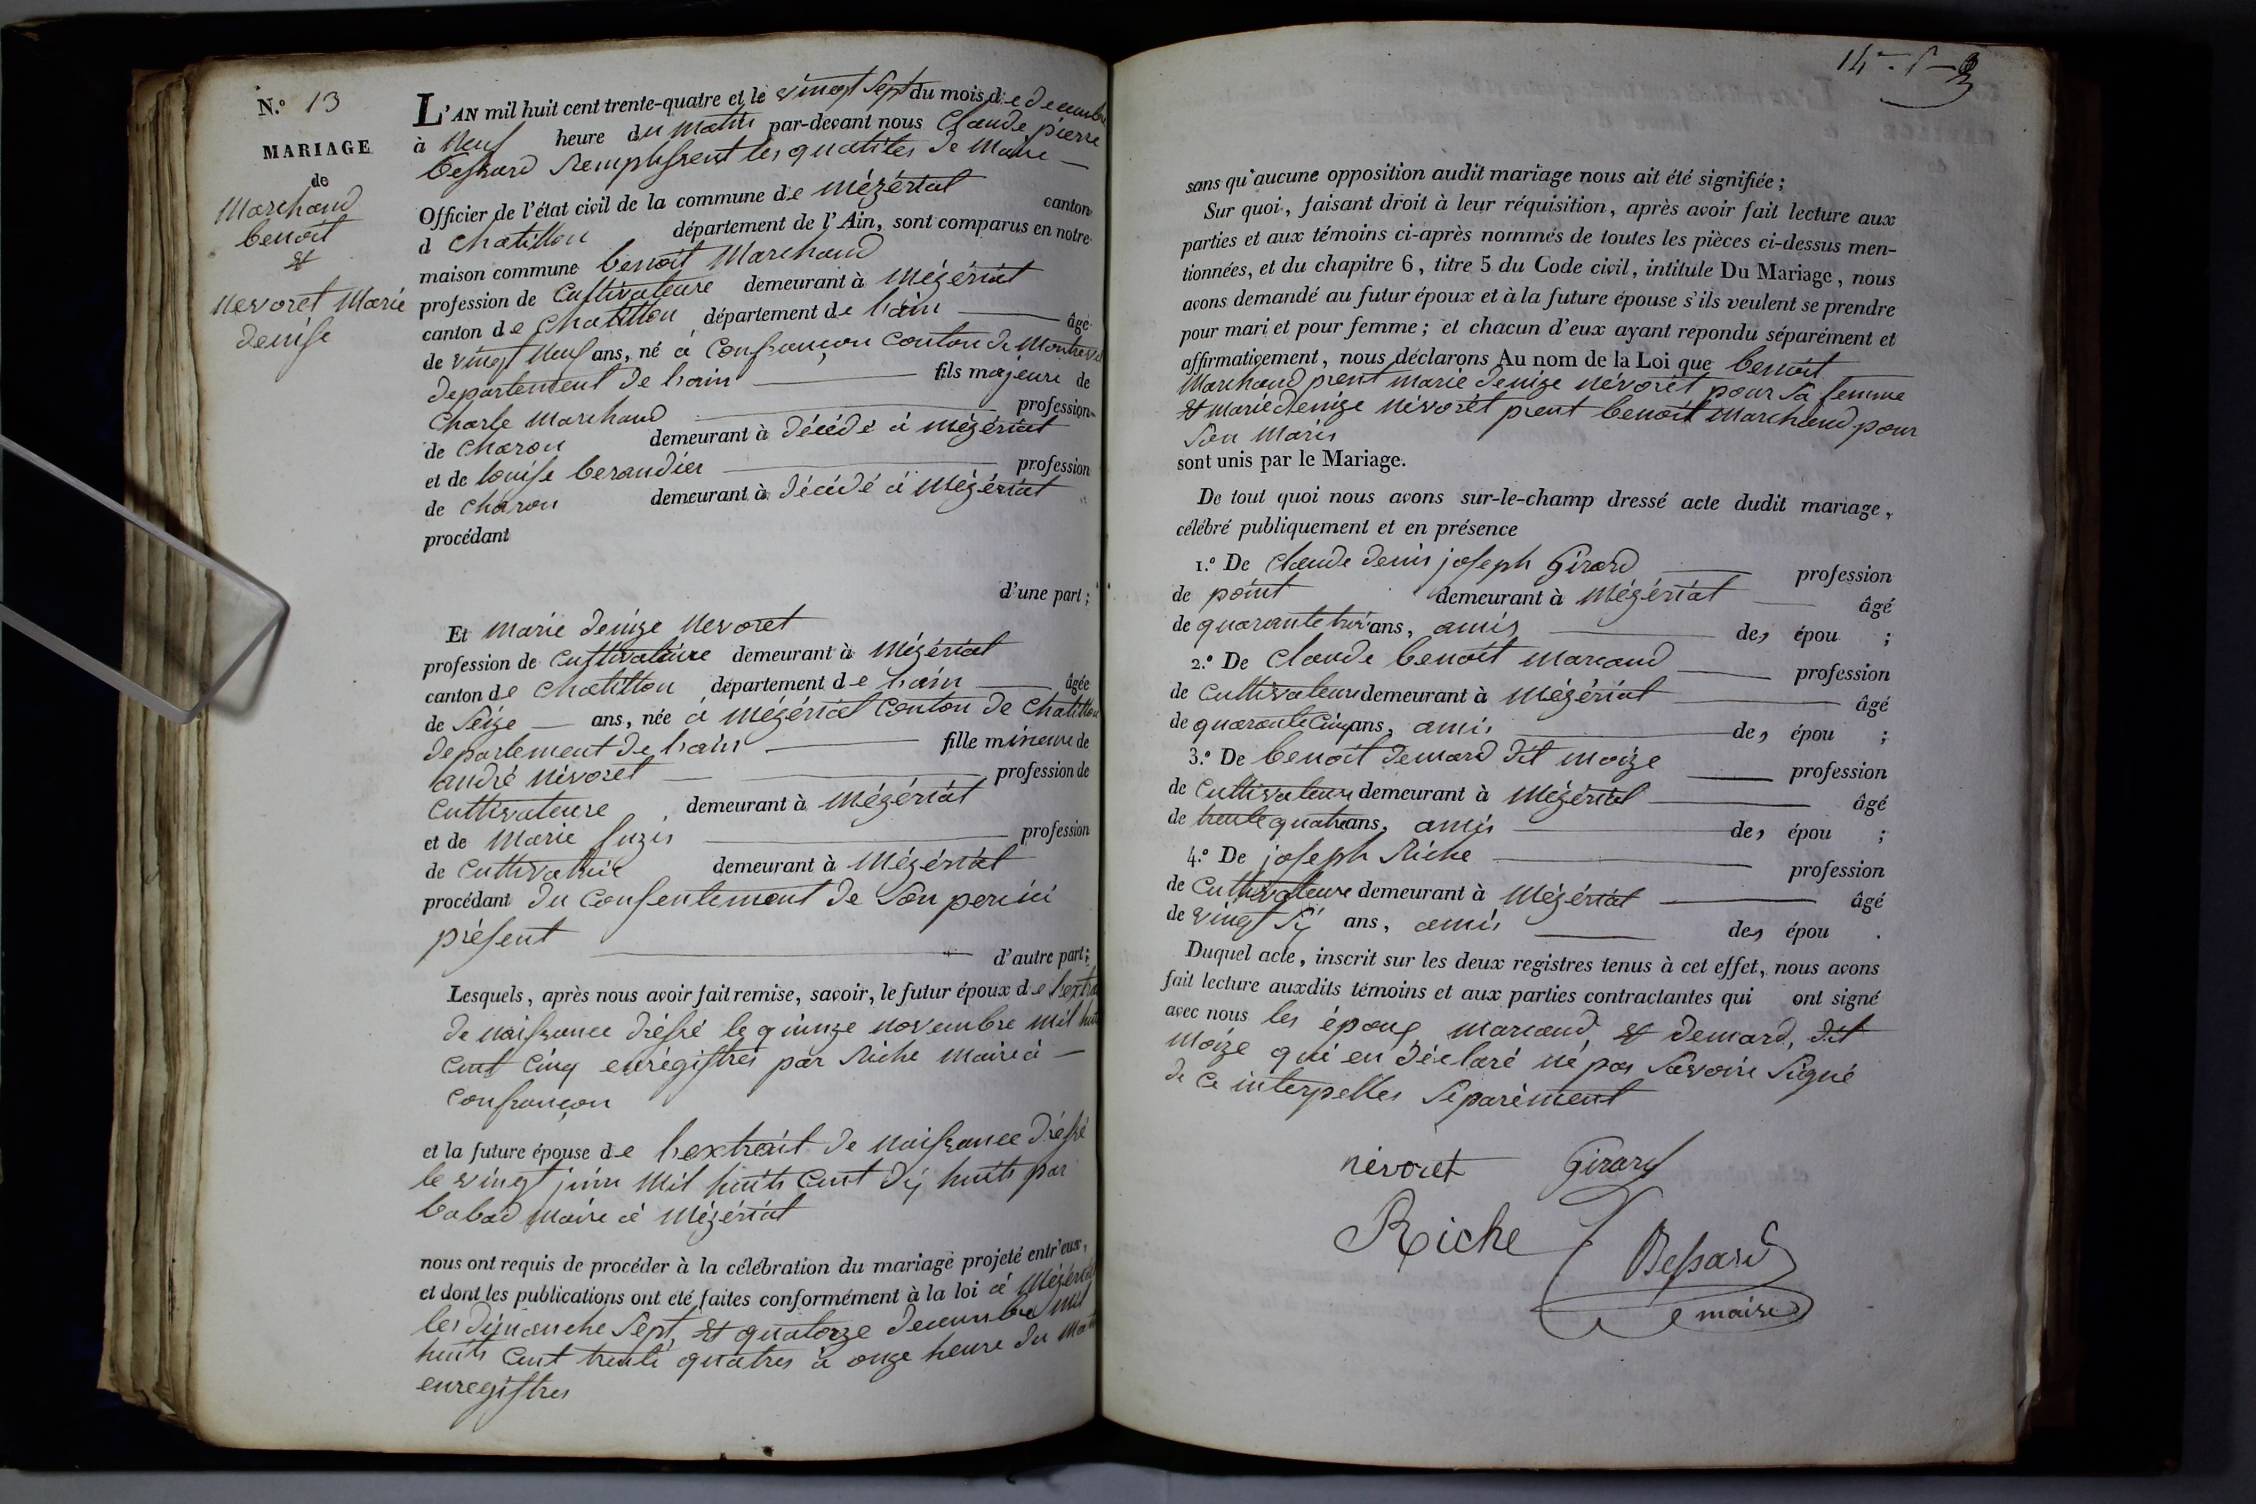 N.º 13
MARIAGE
de
Marchand
benoit
&
nevoret Marie
denise
L'AN mil huit cent trente-quatre et le vingt sept du mois de decembre
à neuf heure du matin par-devant nous Claude pierre
bessard Remplissent les qualités de Maire
Officier de l'état civil de la commune de Mézériat canton
d chatillon département de l'Ain, sont comparus en notre
maison commune benoit Marchand
profession de Cultivateure demeurant à Mézériat
canton de chatillon département de hain âgé
de vingt neuf ans, né à Confrançon Conton de Montrevel
departement de hain fils majeure de
Charle Marchand profession
de charon demeurant à décédé à mézériat
et de louise berandier profession
de charon demeurant à décédé à Mézériat
procédant
d'une part;
Et marie denize Nevoret
profession de Cultivateure demeurant à Mézériat
canton de chatillon département de hain âgée
de Seize ans, née à Mézériat Conton de Chatillon
departement de hain fille mineure de
andré névoret profession de
Cultivateure demeurant à Mézériat
et de Marie profession
de demeurant à Mézériat
procédant du Consentement de Son pere ici
présent
d'autre part;
Lesquels, après nous avoir fait remise, savoir, le futur époux de
de naissance dréssé le quinze novembre mil huit
Cent Cinq enrégistrés par Riche maire à
Confrançon
et la future épouse de hextrait de naissance dréssé
le vingt juin Mil huits Cent dix huits par
babad maire à Mézériat
nous ont requis de procéder à la célébration du mariage projeté entr'eux,
et dont les publications ont eté faites conformément à la loi à Mézériat
les dimanche Sept, & quatorze decembre mil
huits Cent trente quatres à onze heure du Matin
enregistres
sans qu'aucune opposition audit mariage nous ait été signifiée;
Sur quoi, faisant droit à leur réquisition, après avoir fait lecture aux
parties et aux témoins ci-après nommés de toutes les pièces ci-dessus men-
tionnées, et du chapitre 6, titre 5 du Code civil, intitule Du Mariage, nous
avons demandé au futur époux et à la future épouse s'ils veulent se prendre
pour mari et pour femme; et chacun d'eux ayant répondu séparément et
affirmativement, nous déclarons Au nom de la Loi que benoit
Marchand prent marie denize névorét pour sa femme
& marie denize névorét prent benoit Marchand pour
son maris
sont unis par le Mariage.
De tout quoi nous avons sur-le-champ dressé acte dudit mariage,
célébré publiquement et en présence
1.º De claude denis joseph Girard profession
de point demeurant à Mézériat âgé
de quarante ans, amis des épou ;
2.º De Claude benoit marcaud profession
de Cultivateure demeurant à Mézériat âgé
de quarante Cinq ans, amis des épou ;
3.º De benoit demard dit moize profession
de Cultivateure demeurant à Mézériat âgé
de trente quatre ans, amis des épou ;
4.º De joseph Riche profession
de Cultivateure demeurant à Mézériat âgé
de vingt Six ans, amis des épou .
Duquel acte, inscrit sur les deux registres tenus à cet effet, nous avons
fait lecture auxdits témoins et aux parties contractantes qui ont signé
avec nous les époux, marcaud, & demard, dit
moize qui en déclaré né pas Savoire Signé
de ce interpelles Séparément
névoret Girard
Riche Bessard
maire